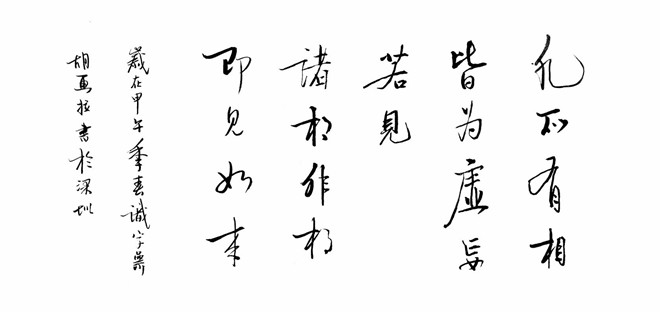 凡所有相
皆为虚妄
若見
諸相非相
即見如来
歲在甲午季春識字
胡書於深圳